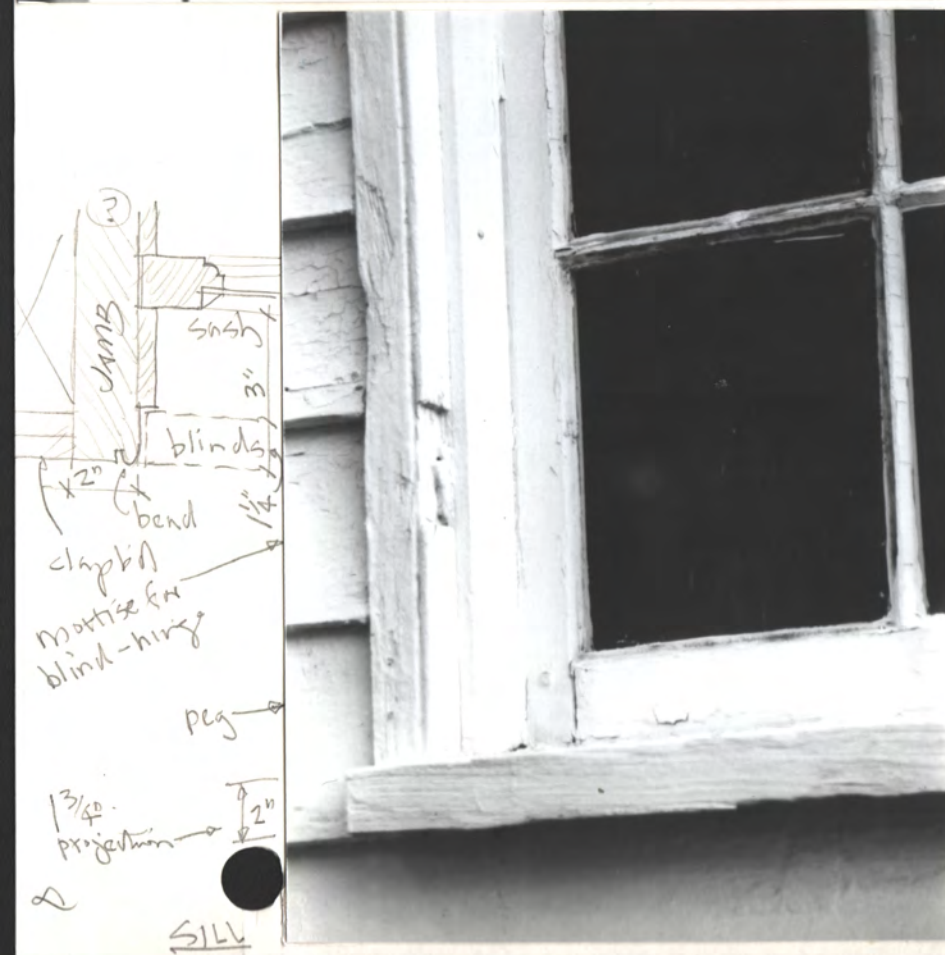 ?
JAMB
sash
3"
blinds
2"
bead
1 1/4"
clapb'd
mortise for
blind-hinge
peg
1 3/4"
projection
2"
SILL